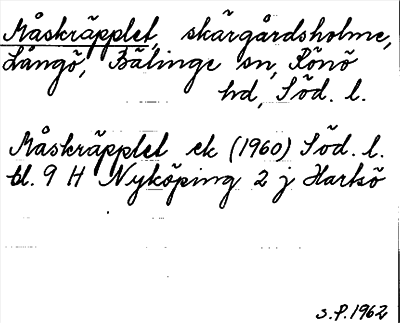 Måskräpplet, skärgårdsholme,
Långö, Bälinge sn, Rönö
hd, Söd. l.
Måskräpplet ek (1960) Söd. l.
bl. 9 H Nyköping 2 j Hartsö
S.P. 1962